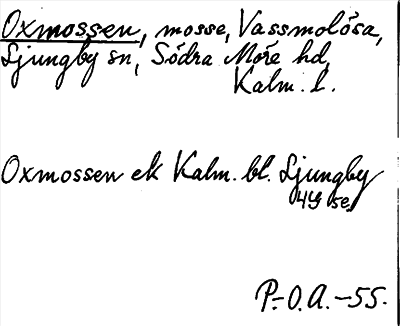 Oxmossen, mosse, Vassmolösa,
Ljungby sn, Södra Möre hd,
Kalm. l.
Oxmossen ek Kalm. bl. Ljungby
4g se.
P.-O.A.-55.